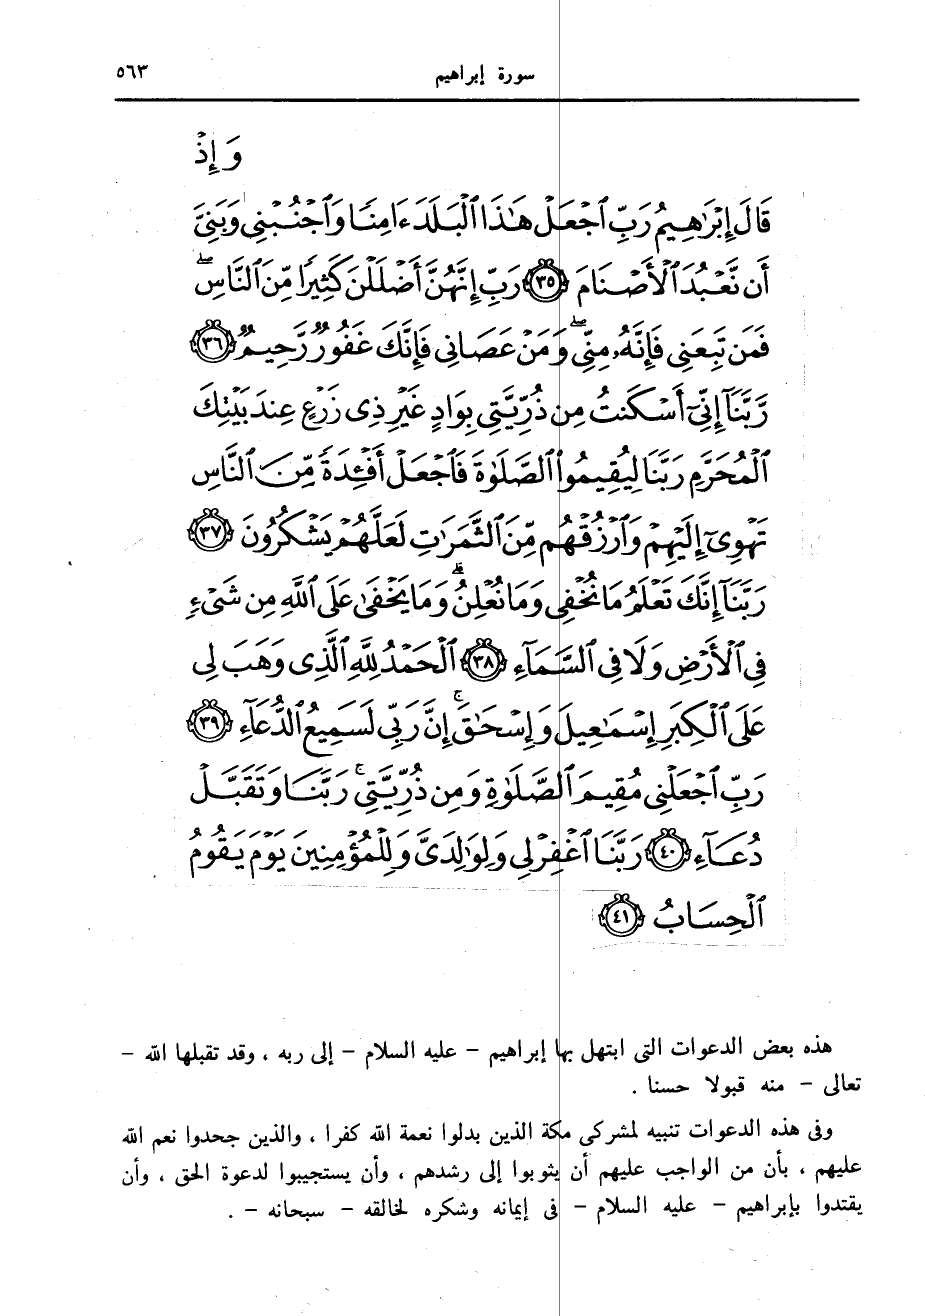 سورة إبراهيم ٥٦٣
وَإِذْ
قَالَ إِبْرَٰهِيمُ رَبِّ ٱجْعَلْ هَٰذَا ٱلْبَلَدَ ءَامِنًا وَٱجْنُبْنِى وَبَنِىَّ
أَن نَّعْبُدَ ٱلْأَصْنَامَ ٣٥ رَبِّ إِنَّهُنَّ أَضْلَلْنَ كَثِيرًا مِّنَ ٱلنَّاسِ ۖ
فَمَن تَبِعَنِى فَإِنَّهُۥ مِنِّى ۖ وَمَنْ عَصَانِى فَإِنَّكَ غَفُورٌ رَّحِيمٌ ٣٦
رَّبَّنَآ إِنِّىٓ أَسْكَنتُ مِن ذُرِّيَّتِى بِوَادٍ غَيْرِ ذِى زَرْعٍ عِندَ بَيْتِكَ
ٱلْمُحَرَّمِ رَبَّنَا لِيُقِيمُوا۟ ٱلصَّلَوٰةَ فَٱجْعَلْ أَفْـِٔدَةً مِّنَ ٱلنَّاسِ
تَهْوِىٓ إِلَيْهِمْ وَٱرْزُقْهُم مِّنَ ٱلثَّمَرَٰتِ لَعَلَّهُمْ يَشْكُرُونَ ٣٧
رَبَّنَآ إِنَّكَ تَعْلَمُ مَا نُخْفِى وَمَا نُعْلِنُ ۗ وَمَا يَخْفَىٰ عَلَى ٱللَّهِ مِن شَىْءٍ
فِى ٱلْأَرْضِ وَلَا فِى ٱلسَّمَآءِ ٣٨ ٱلْحَمْدُ لِلَّهِ ٱلَّذِى وَهَبَ لِى
عَلَى ٱلْكِبَرِ إِسْمَٰعِيلَ وَإِسْحَٰقَ ۚ إِنَّ رَبِّى لَسَمِيعُ ٱلدُّعَآءِ ٣٩
رَبِّ ٱجْعَلْنِى مُقِيمَ ٱلصَّلَوٰةِ وَمِن ذُرِّيَّتِى ۚ رَبَّنَا وَتَقَبَّلْ
دُعَآءِ ٤٠ رَبَّنَا ٱغْفِرْ لِى وَلِوَٰلِدَىَّ وَلِلْمُؤْمِنِينَ يَوْمَ يَقُومُ
ٱلْحِسَابُ ٤١
هذه بعض الدعوات التى ابتهل بها إبراهيم – عليه السلام – إلى ربه ، وقد تقبلها الله –
تعالى – منه قبولا حسنا .
وفى هذه الدعوات تنبيه لمشركى مكة الذين بدلوا نعمة الله كفرا ، والذين جحدوا نعم الله
عليهم ، بأن من الواجب عليهم أن يثوبوا إلى رشدهم ، وأن يستجيبوا لدعوة الحق ، وأن
يقتدوا بإبراهيم – عليه السلام – فى إيمانه وشكره لخالقه – سبحانه – .